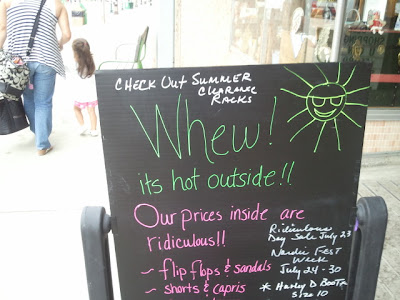 Check Out Summer
Clearance
Racks
Whew!
its hot outside!!
Our prices inside are
ridiculous!!
~ flip flops & sandals
~ shorts & capris
Ridiculous
Day Sale July 23
Nordic Fest
Week
July 24-30
* Harley D Boots